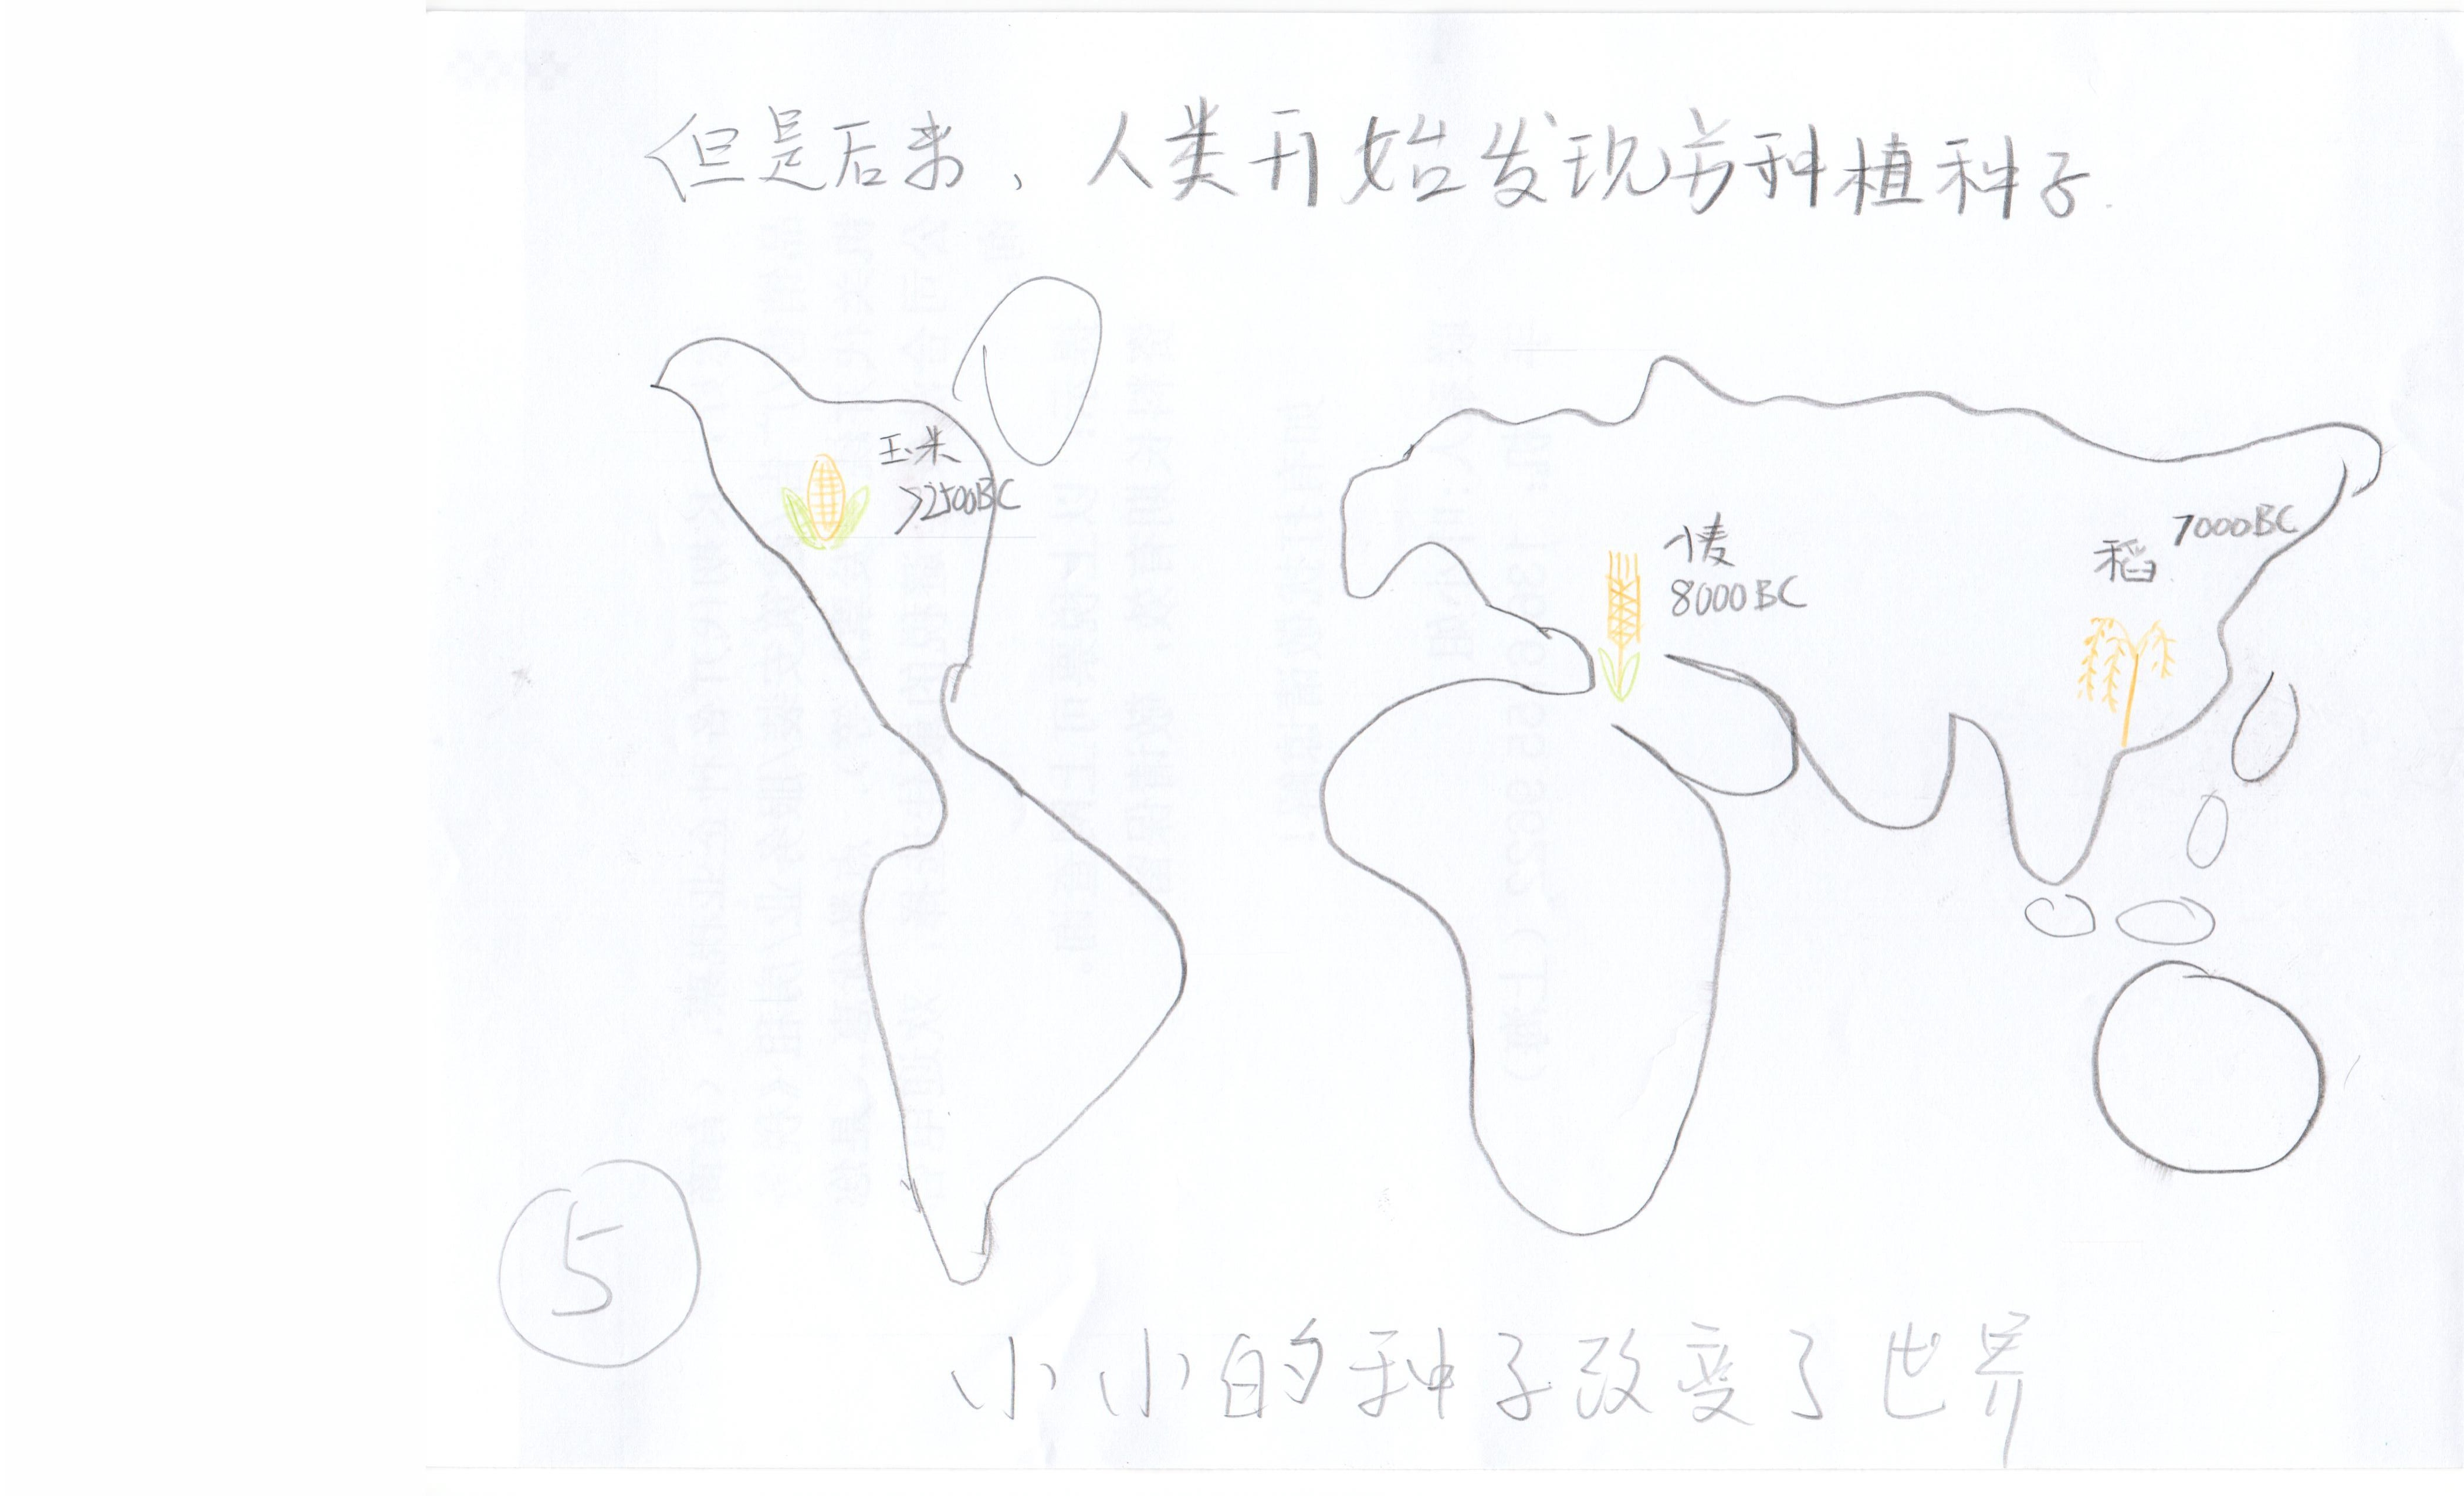 但是后来，人类开始发现并种植种子.
玉米
>2500BC
小麦
8000BC
7000BC
稻
5
小小的种子改变了世界